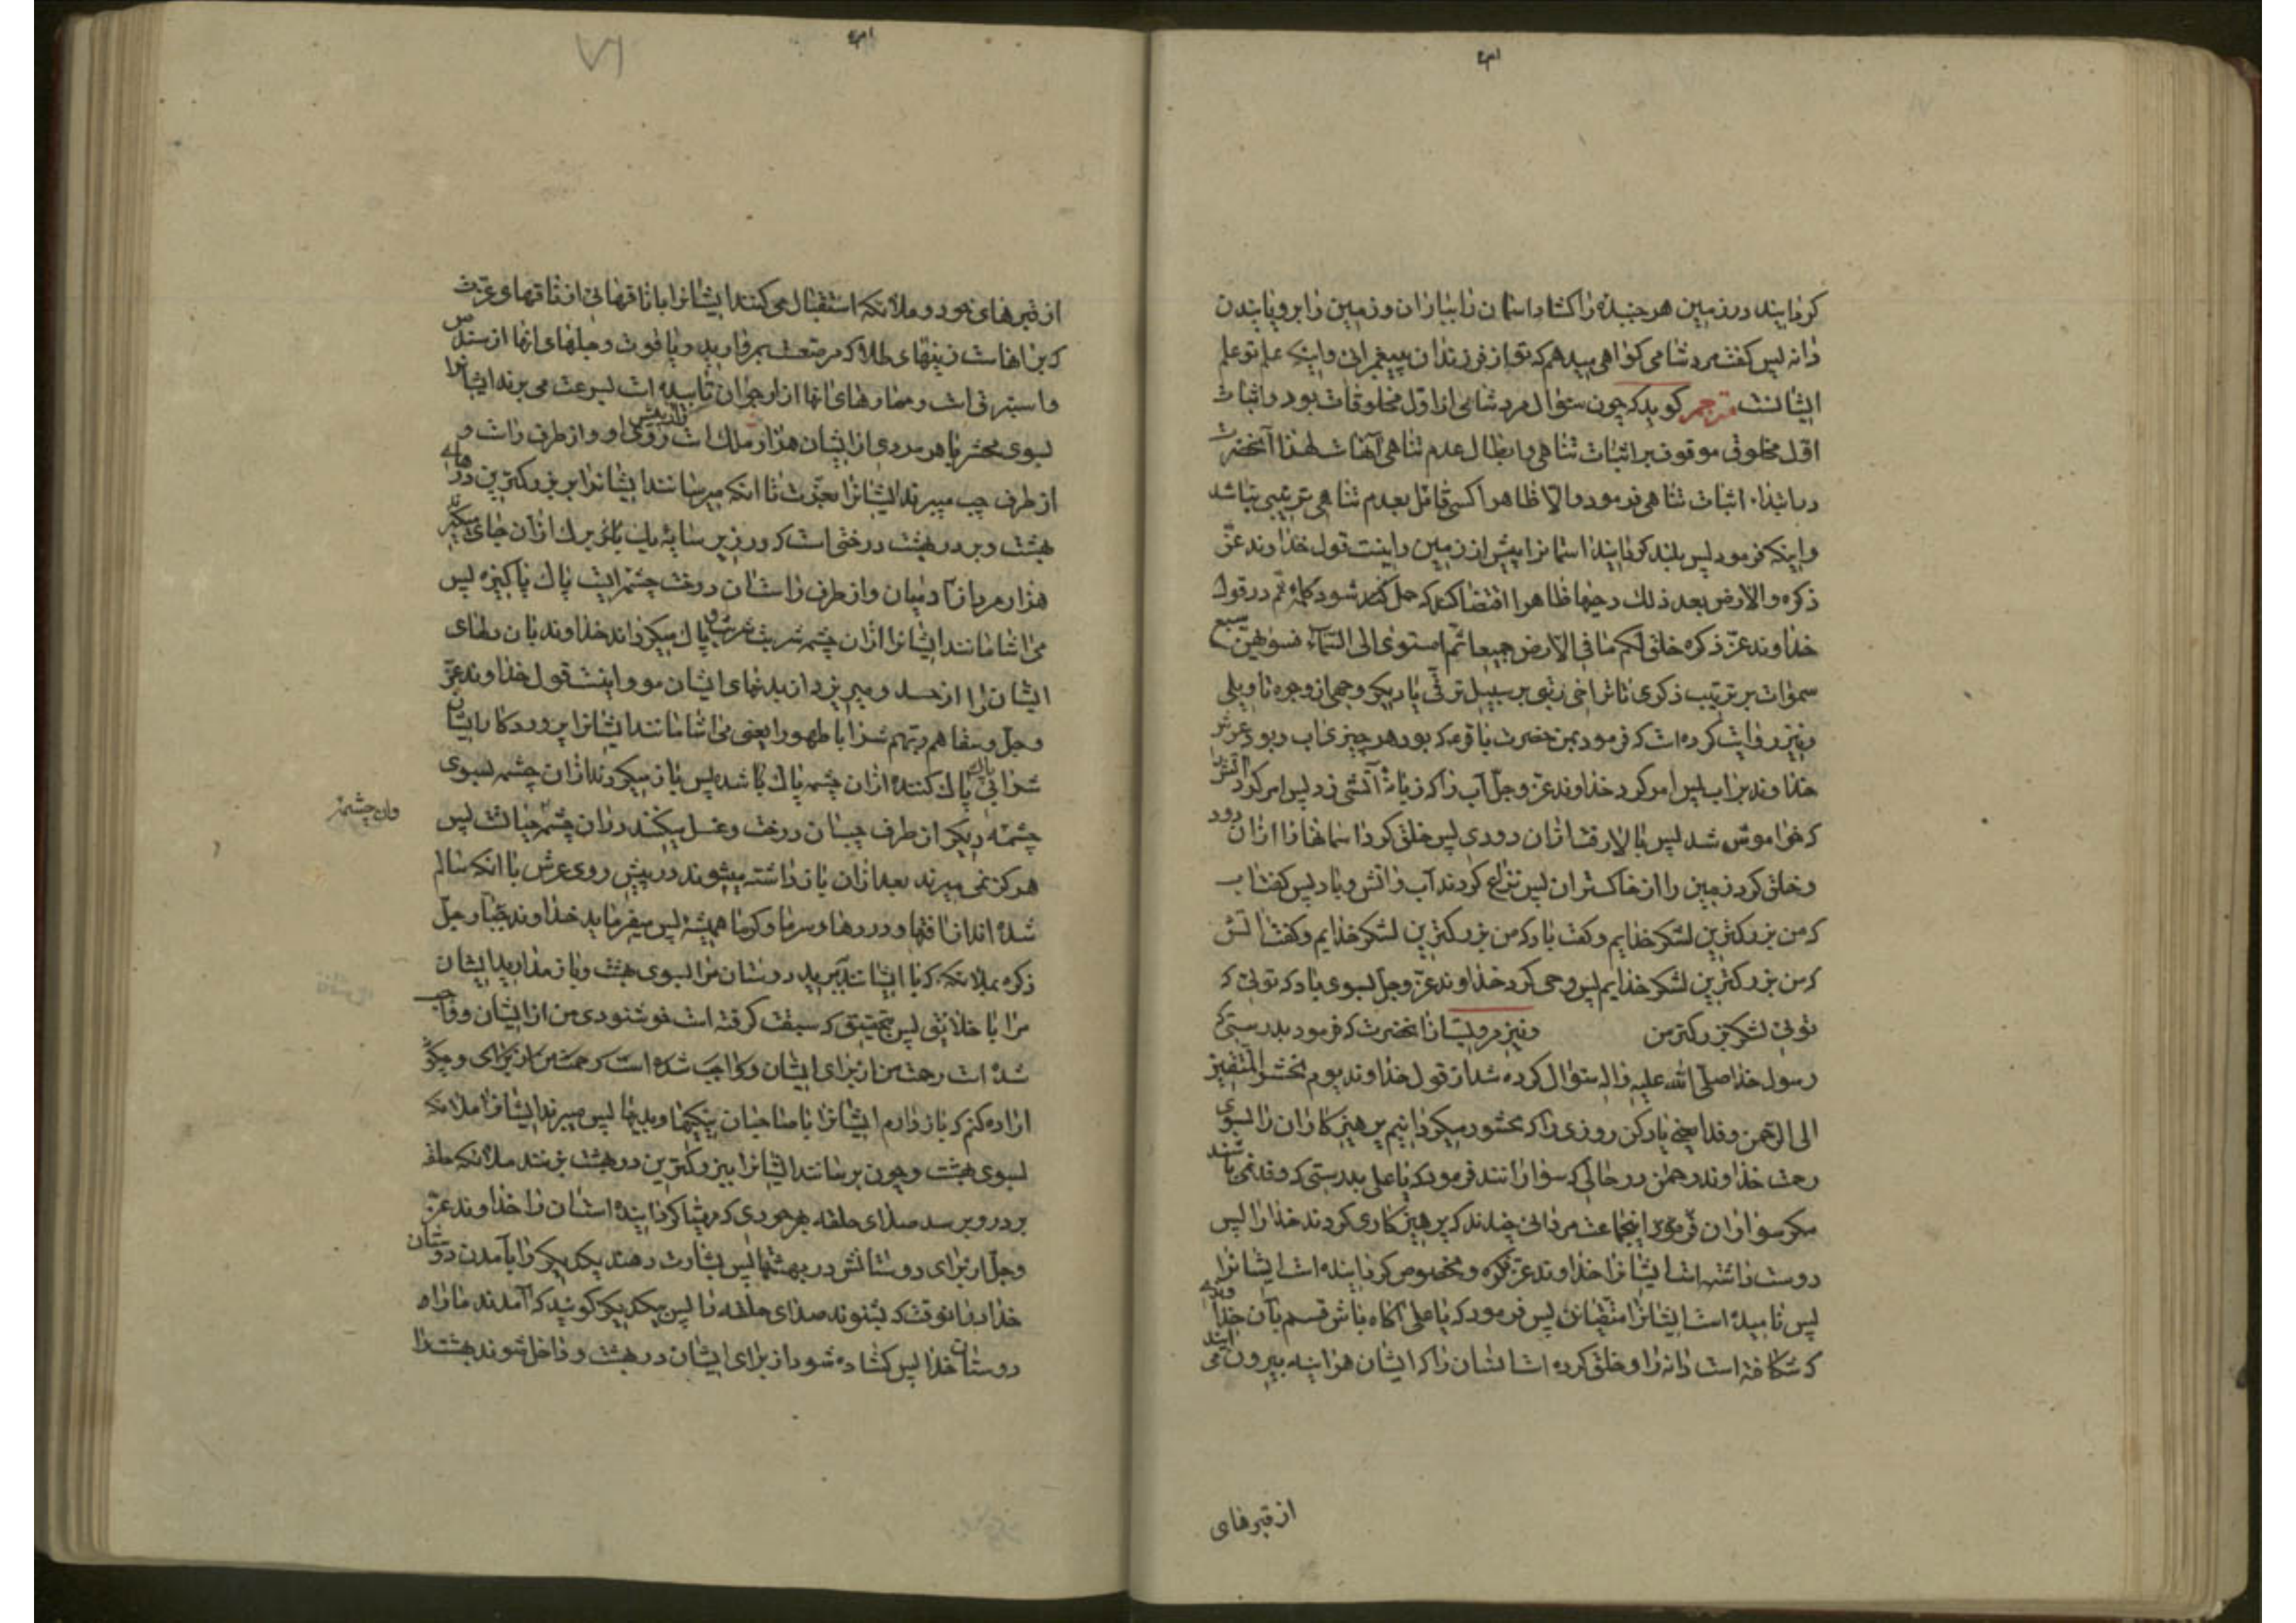 کردانید در زمین هر جنبنده را کشاد اسمان را بباران و زمین را برویانیدن
دانه پس کفت مرد شامی کواهی میدهم که تو از فرزندان پیغمبرانی و اینکه علم تو علم
ایشانست مترجم کوید که چون سئوال مرد شامی از اول مخلوقات بود و اثبات
اول مخلوق موقوف بر اثبات تناهی و ابطال عدم تناهی آنهاست لهذا آنحضرت
در ابتدا اثبات تناهی فرمود و الا ظاهرا کسی قائل بعدم تناهی ترتیبی نباشد
و اینکه فرمود پس بلند کردانید اسمانرا پیش از زمین و اینست قول خداوند عز
ذکره و الارض بعد ذلک دحیها ظاهرا اقتضا کند که حمل کرده شود کلمهٔ ثم در قول
خداوند عز ذکره خلق لکم ما فی الارض جمیعا ثم استوی الی السماء فسویهن سبع
سموات بر ترتیب ذکری یا تراخی رتبی بر سبیل ترقی یا دیکر وجهی از وجوه تاویلی
و نیز روایت کرده است که فرمود بمن حضرت باقر که بود هر چیزی آب و بود عرش
خداوند بر اب پس امر کرد خداوند عز و جل آب را که زبانهٔ آتشی زد پس امر کرد آتش را
که خواموش شد پس بالا رفت ازان دودی پس خلق کرد اسمانها را ازان دود
و خلق کرد زمین را از خاکستر ان پس نزاع کردند آب و اتش و باد پس کفت اب
که من بزرکترین لشکر خدایم و کفت باد که من بزرکترین لشکر خدایم و کفت آتش
که من بزرکترین لشکر خدایم پس وحی کرد خداوند عز و جل بسوی باد که توئی که
توئی لشکر بزرکتر من و نیز مرویست از انحضرت که فرمود بدرستی که
رسول خدا صلی الله علیه و اله سئوال کرده شد از قول خداوند یوم نحشر المتقین
الی الرحمن وفدا یعنی یاد کن روزی را که محشور میکردانیم پرهیزکاران را بسوی
رحمت خداوند رحمن در حالی که سوارانند فرمود که یا علی بدرستی که وفد نمی باشند
مکر سواران فرمود اینجماعت مردانی چندند که پرهیزکاری کردند خدا را پس
دوست داشته است ایشانرا خداوند عز ذکره و مخصوص کردانیده است ایشانرا
پس نامیده است ایشانرا متقیان پس فرمود که یا علی آکاه باش قسم بآن خدائی
که شکافته است دانه را و خلق کرده است انسان را که ایشان هر اینه بیرون می ایند
از قبرهای
از قبرهای خود و ملائکه استقبال می کنند ایشانرا با ناقهائی از ناقهای عزت
که بر انهاست زینهای طلا که مرصعست بمروارید و یاقوت و جلهای انها از سندس
و استبرق است و مهارهای انها از ارجوان تابیده است بسرعت می برند ایشانرا
بسوی محشر با هر مردی از ایشان هزار ملک است از پیش روی او و از طرف راست و
از طرف چپ میبرند ایشانرا بعزت تا انکه میرسانند ایشانرا ببزرکترین درهای
بهشت و بر در بهشت درختی است که در زیر سایهٔ یک برک ازان جای میکیرند
هزار مرد از آدمیان و از طرف راست ان درخت چشمه ایست پاک پاکیزه پس
می اشامانند ایشانرا ازان چشمه شربت شربتی پاک میکرداند خداوند بان دلهای
ایشان را از حسد و میریزد از بدنهای ایشان مو و اینست قول خداوند عز
و جل و سقاهم ربهم شرابا طهورا یعنی می اشامانند ایشانرا پروردکار ایشان
شرابی پاک کننده ازان چشمه پاک باشد پس باز میکردند ازان چشمه بسوی
چشمهٔ دیکر از طرف چپ ان درخت و غسل میکنند دران چشمه حیات پس
وان چشمهٔ
هرکز نمی میرند بعد ازان باز داشته میشوند در پیش روی عرش با انکه سالم
شده اند از افتها و دردها و سرما و کرما همیشه پس میفرماید خداوند جبار جل
ذکره بملائکه که با ایشانند ببرید دوستان مرا بسوی بهشت و باز مدارید ایشان
مرا با خلایق پس بتحقیق که سبقت کرفته است خوشنودی من از ایشان و واجب
شده است رحمت من از برای ایشان و چکونه
اراده کنم که باز دارم ایشانرا با صاحبان نیکیها و بدیها پس میبرند ایشانرا ملائکه
بسوی بهشت و چون برسانند ایشانرا ببزرکترین در بهشت بزنند ملائکه حلقه
بر در و برسد صدای حلقه بهر حوری که مهیا کردانیده است ان را خداوند عز
و جل از برای دوستانش در بهشتها پس بشارت دهند یکدیکر را بآمدن دوستان
خدا در انوقت که بشنوند صدای حلقه را پس بیکدیکر کویند که آمدند ما را
دوستان خدا پس کشاده شود از برای ایشان در بهشت و داخل شوند بهشت را